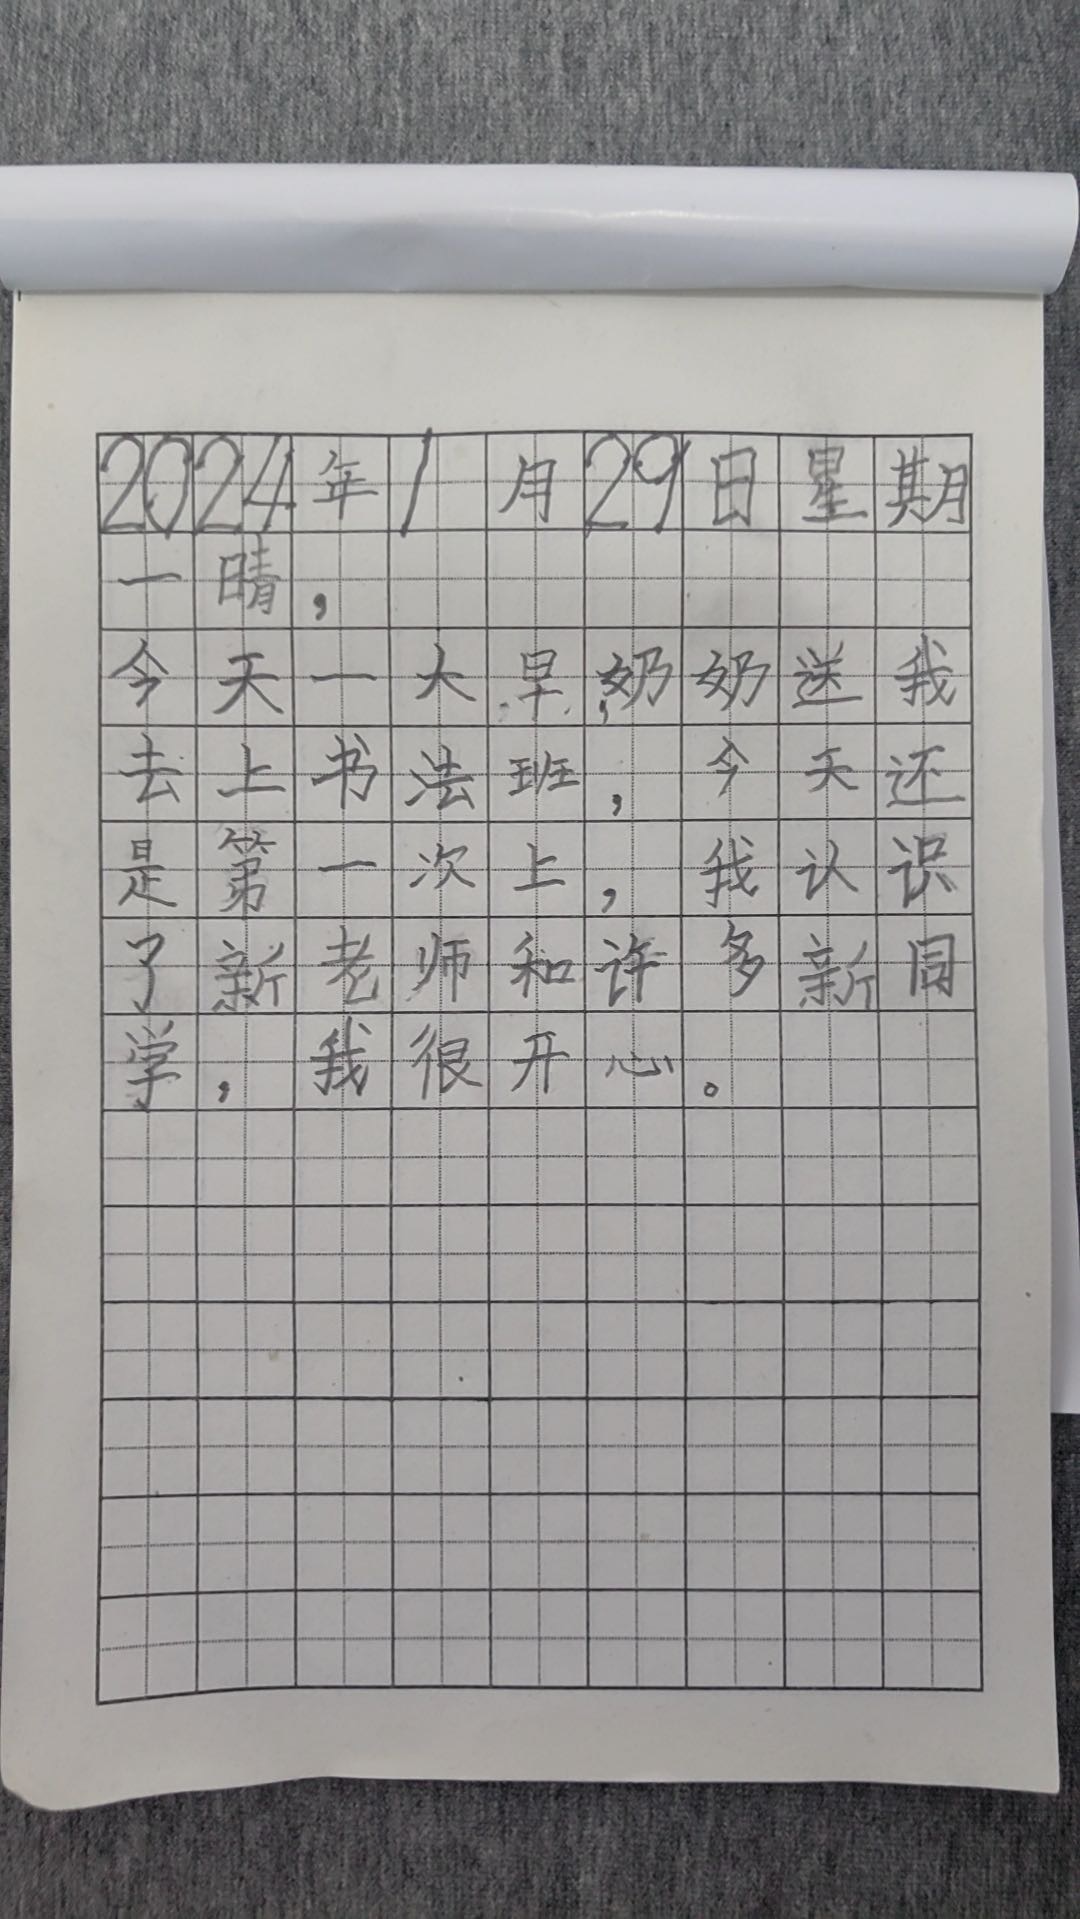 2024年1月29日星期
一晴，
今天一大早，奶奶送我
去上书法班，今天还
是第一次上，我认识
了新老师和许多新同
学，我很开心。